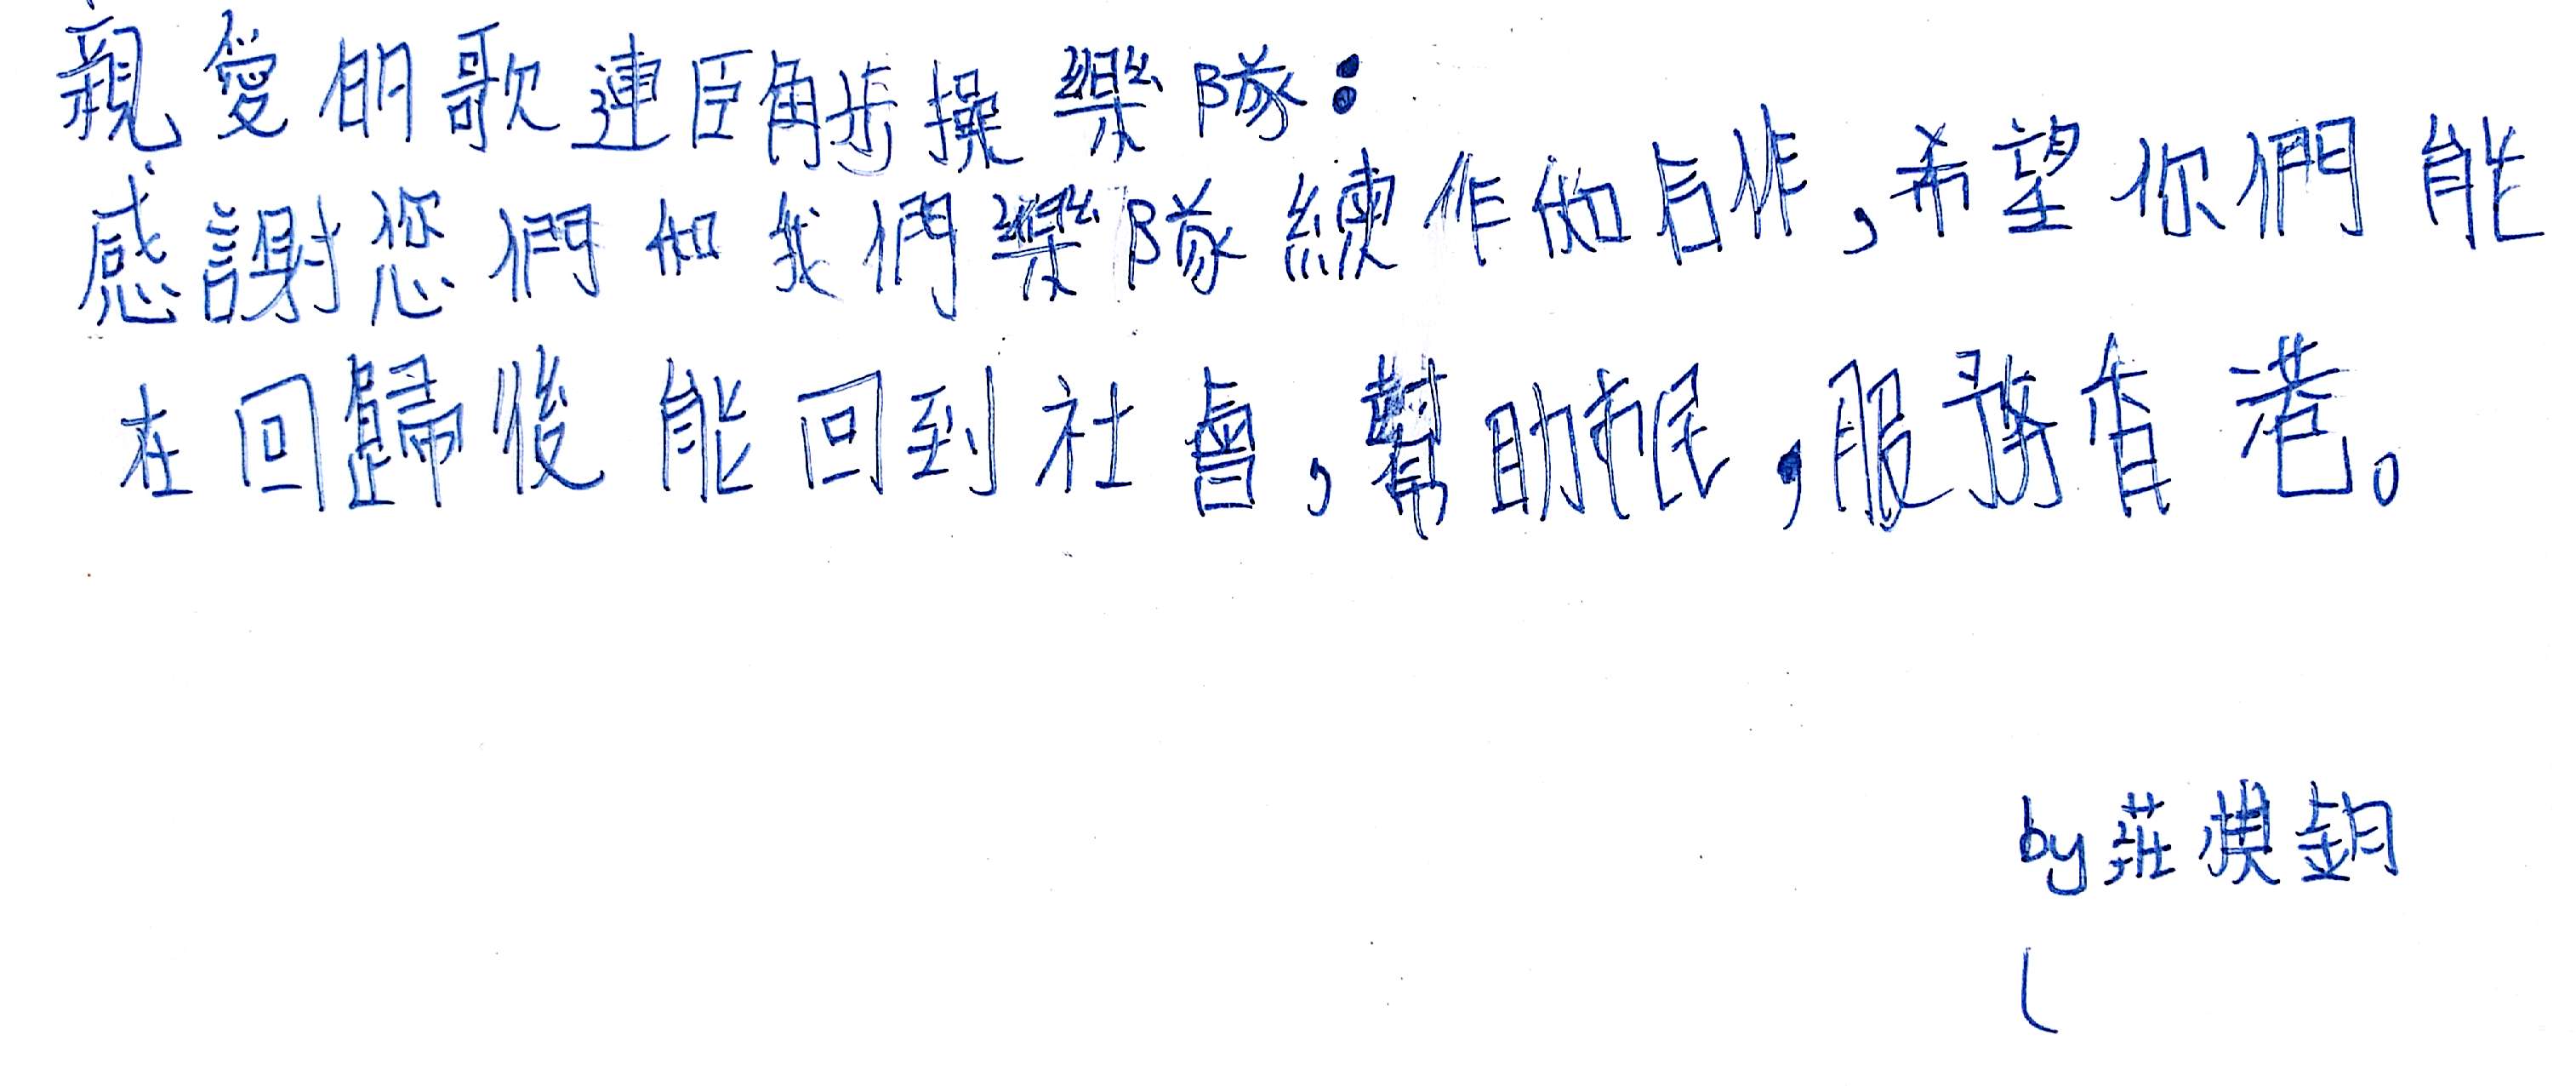 親愛的歌連臣角步操樂隊：
感謝您們和我們樂隊練作和合作,希望你們能
在回歸後能回到社會,幫助市民,服務香港。
by莊模鈞